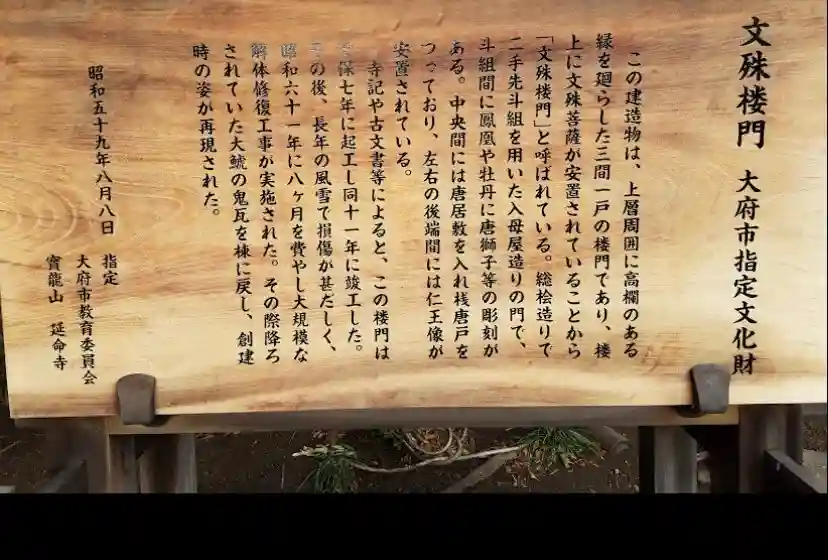 文殊楼門 大府市指定文化財
この建造物は、上層周囲に高欄のある
縁を廻らした三間一戸の楼門であり、楼
上に文殊菩薩が安置されていることから
「文殊楼門」と呼ばれている。総桧造りで
二手先斗組を用いた入母屋造りの門で、
斗組間に鳳凰や牡丹に唐獅子等の彫刻が
ある。中央間には唐居敷を入れ桟唐戸を
つっており、左右の後端間には仁王像が
安置されている。
寺記や古文書等によると、この楼門は
保七年に起工し同十一年に竣工した。
その後、長年の風雪で損傷が甚だしく、
昭和六十一年に八ヶ月を費やし大規模な
解体修復工事が実施された。その際降ろ
されていた大鯱の鬼瓦を棟に戻し、創建
時の姿が再現された。
昭和五十九年八月八日 指定
大府市教育委員会
寶龍山 延命寺